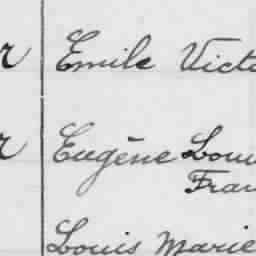 r Emile Victo
r Eugène Loui
Fran
Louis Marie